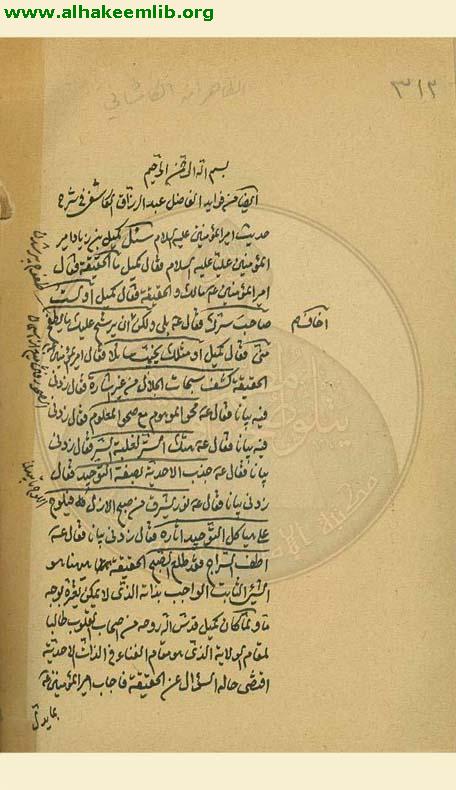 www.alhakeemlib.org
٣١٢
بسم الله الرحمن الرحيم
ايضا من فوايد الفاضل عبد الرزاق الكاشي في شرح
حديث امير المؤمنين عليه السلام سئل كميل بن زياد امير
المؤمنين عليا عليه السلام فقال كميل ما الحقيقة فقال
امير المؤمنين ع مالك و الحقيقة فقال كميل أولست
صاحب سرك فقال ع بلى ولكن يرشح عليك ما يطفح
منى فقال كميل أو مثلك يخيب سائلا فقال امير المؤمنين
الحقيقة كشف سبحات الجلال من غير اشارة فقال زدنى
فيه بيانا فقال ع محو الموهوم مع صحو المعلوم فقال زدنى
فيه بيانا فقال ع هتك السر لغلبة السر فقال زدنى
بيانا فقال ع جذب الاحدية لصفة التوحيد فقال
زدنى بيانا فقال ع نور يشرق من صبح الازل فيلوح
على هياكل التوحيد اثاره فقال زدنى بيانا فقال ع
اطف السراج فقد طلع الصبح الحقيقة ههنا هو
الشئ الثابت الواجب بذاته الذى لا يمكن تغيره بوجه
ما ولما كان كميل قدس الله روحه من اصحاب القلوب طالبا
لمقام الولاية الذى هو مقام الفناء فى الذات الاحدية
اقتضى حاله السؤال عن الحقيقة فاجاب امير المؤمنين ع
بما يدل